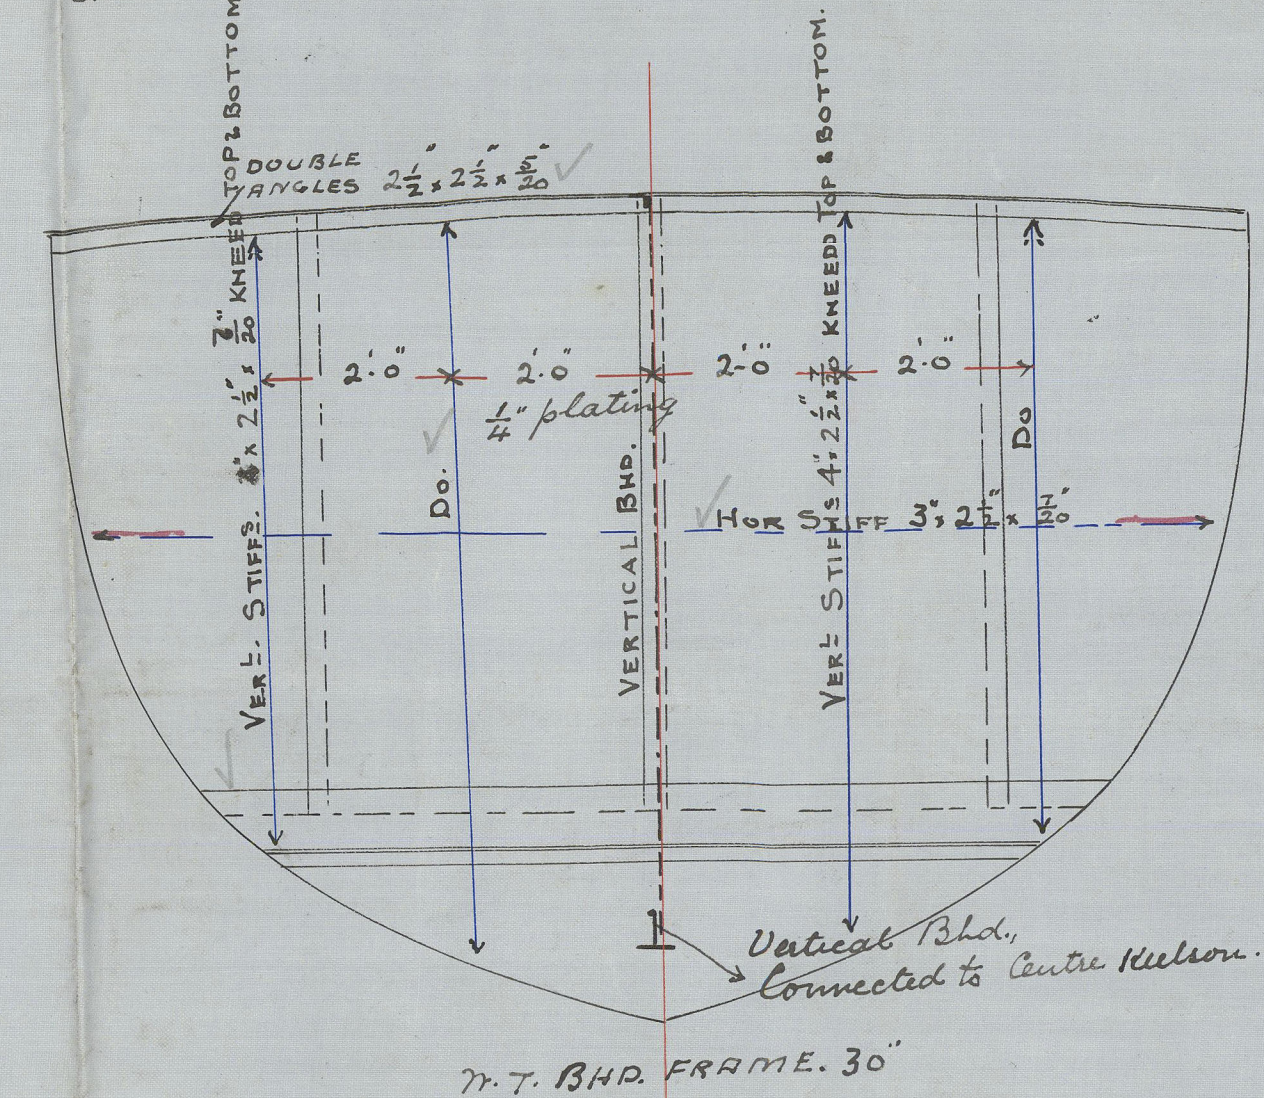 DOUBLE
ANGLES 2½" x 2½" x 5/20"
VERL. STIFFS. 4" x 2½" x 7/20" KNEED TOP & BOTTOM
2'.0"
2'.0"
2'-0"
2'.0"
¼" plating
Do.
VERTICAL BHD.
VERL STIFFS 4" x 2½" x 7/20 KNEED TOP & BOTTOM.
Do
HOR STIFF 3" x 2½" x 7/20"
Vertical Bhd.,
Connected to Centre Keelson.
W.T. BHD. FRAME. 30"